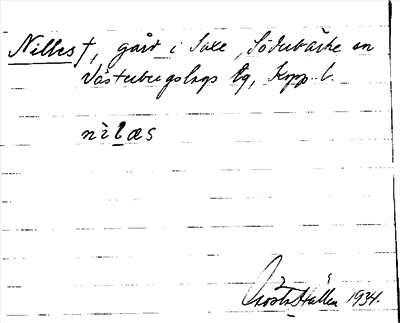 Nilles †, gård i Saxe, Söderbärke sn
Västerbergslags tg, Kopp. l.
nìlæs
Gösta Hallén 1934.